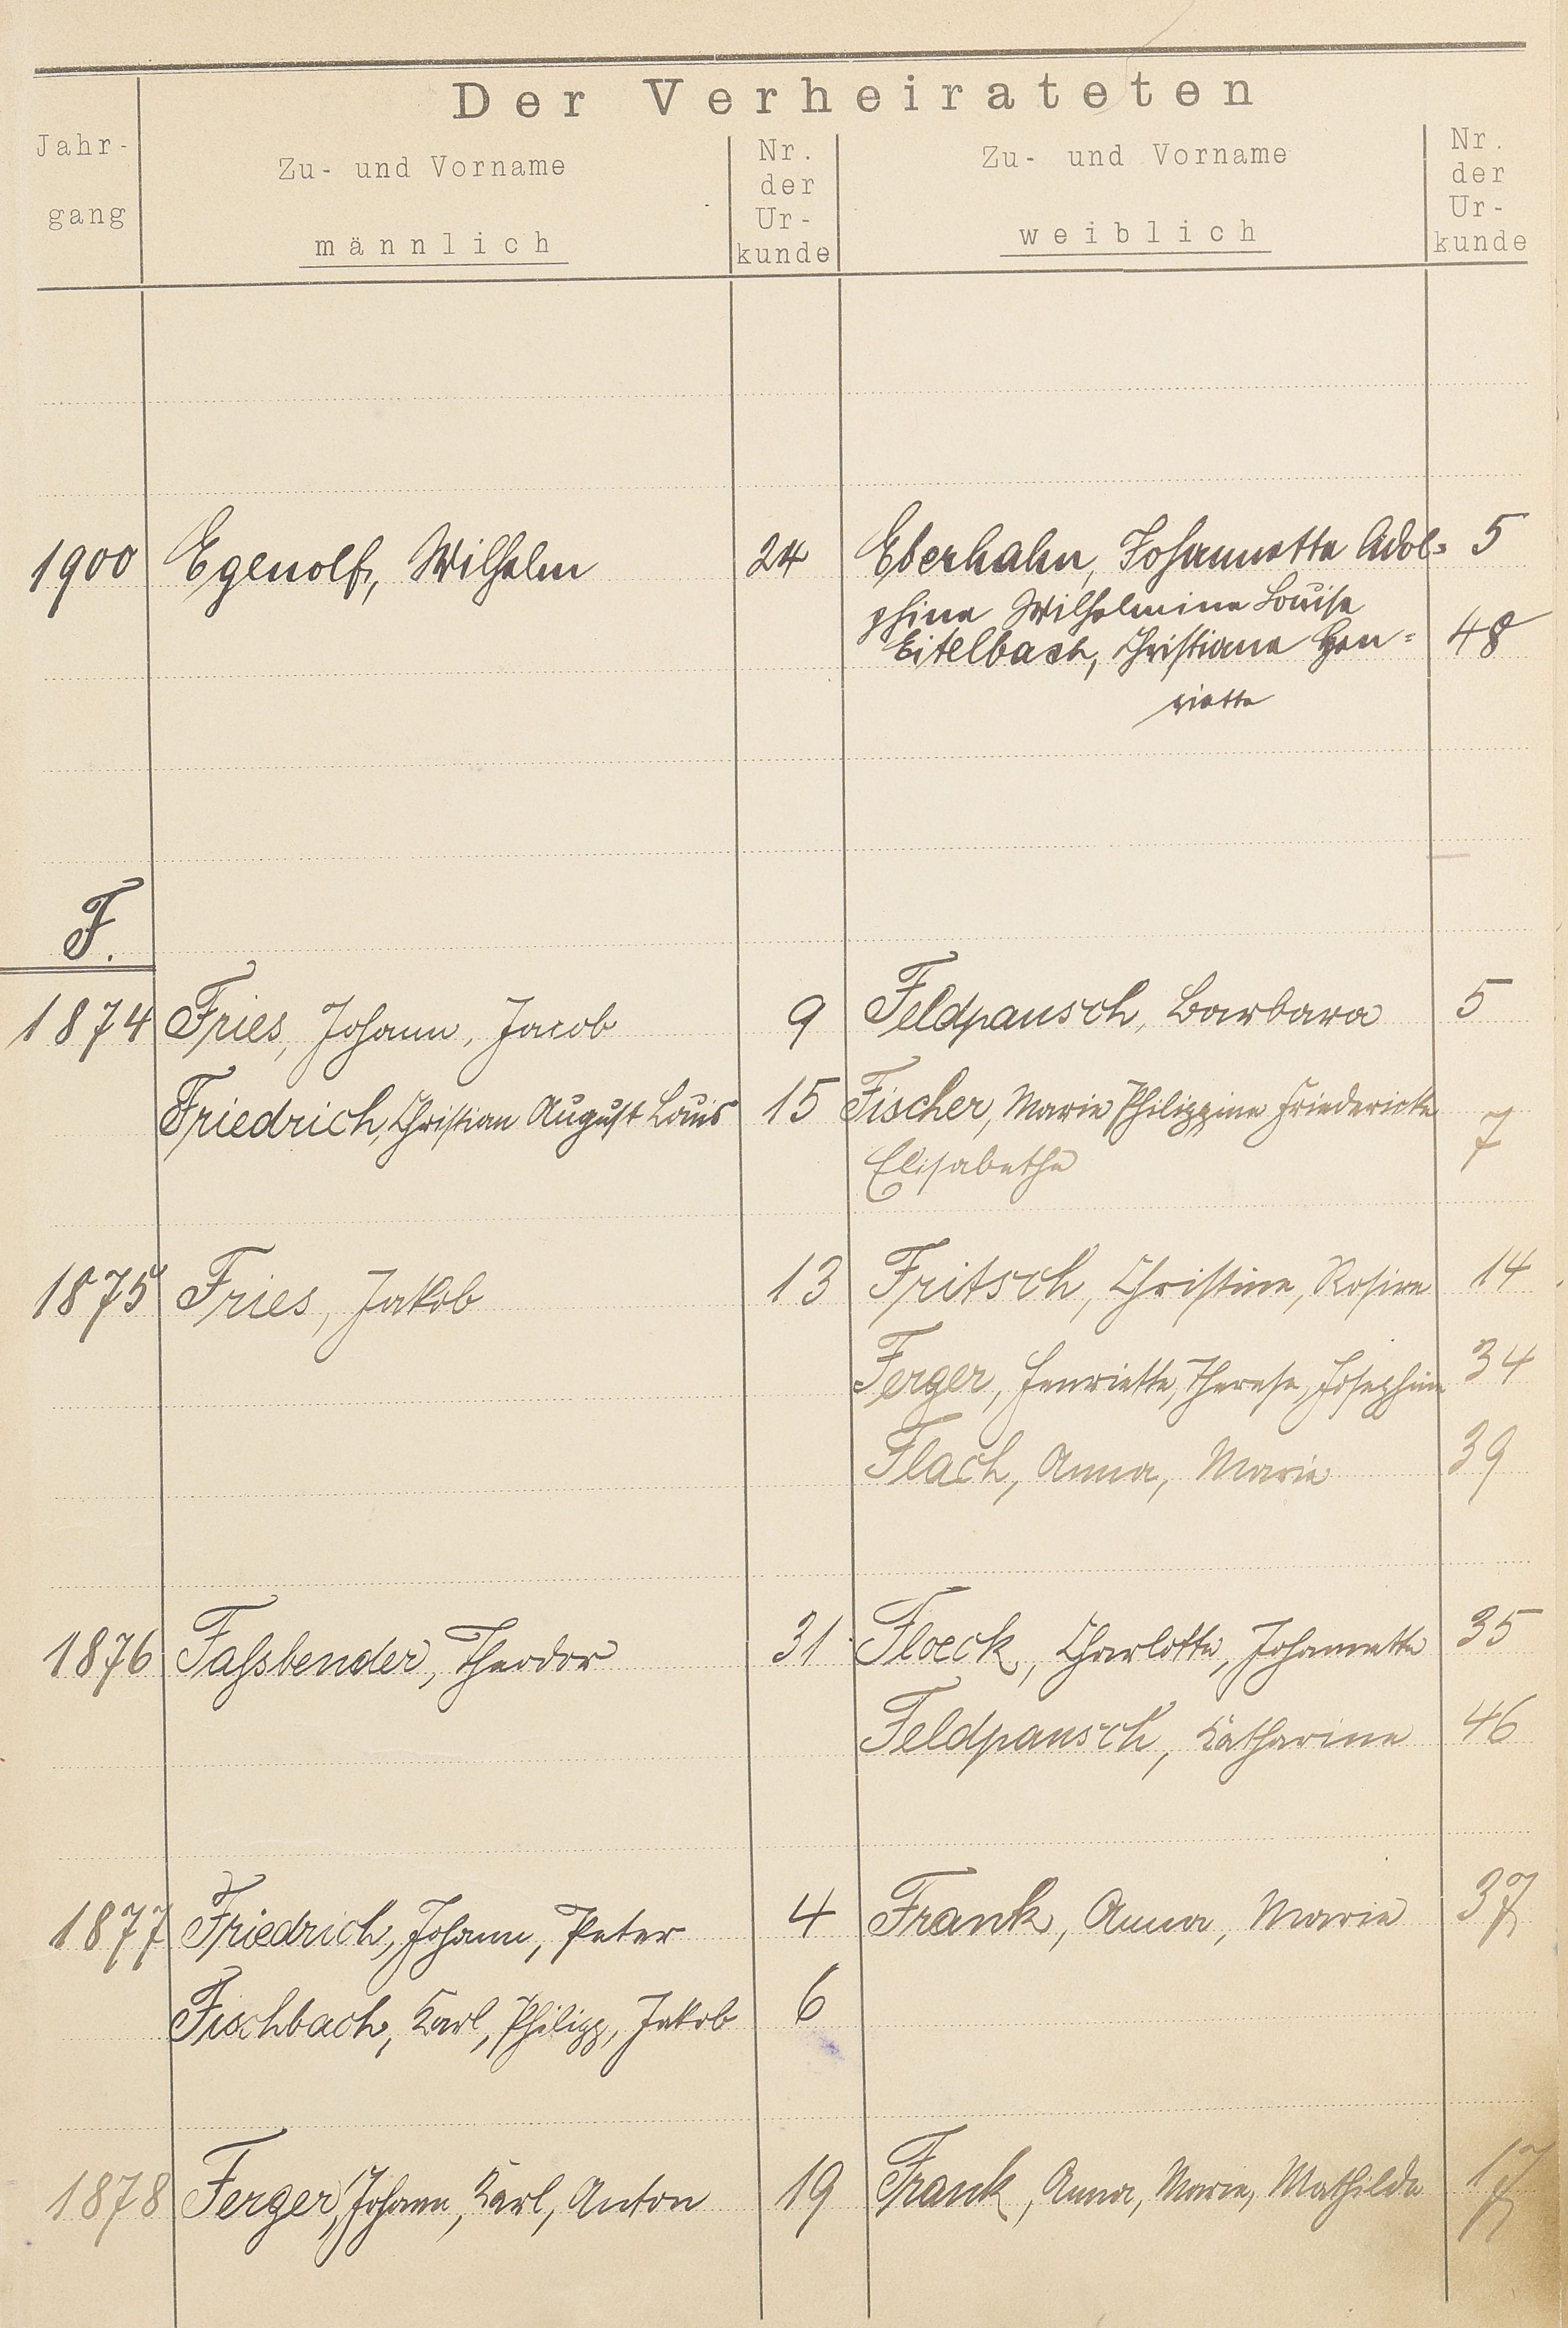 Der Verheirateten
Jahr-
gang
Zu- und Vorname
männlich
Nr.
der
Ur-
kunde
Zu- und Vorname
weiblich
Nr.
der
Ur-
kunde
1900 Egenolf, Wilhelm 24 Eberhahn, Johannette Adol= 5
phine Wilhelmine Louise
Eitelbach, Christiane Hen= 48
riette
F.
1874 Fries, Johann, Jacob 9 Feldpausch, Barbara 5
Friedrich, Christian August Louis 15 Fischer, Marie Philippine Friedericke
Elisabethe 7
1875 Fries, Jakob 13 Fritsch, Christine, Rosine 14
Ferger, Henriette, Therese, Josephine 34
Flach, Anna, Marie 39
1876 Faßsbender, Theodor 31 Floeck, Charlotte, Johannette 35
Feldpausch, Katharine 46
1877 Friedrich, Johann, Peter 4 Frank, Anna, Marie 37
Fischbach, Karl, Philipp, Jakob 6
1878 Ferger, Johann, Karl, Anton 19 Frank, Anna, Marie, Mathilde 17